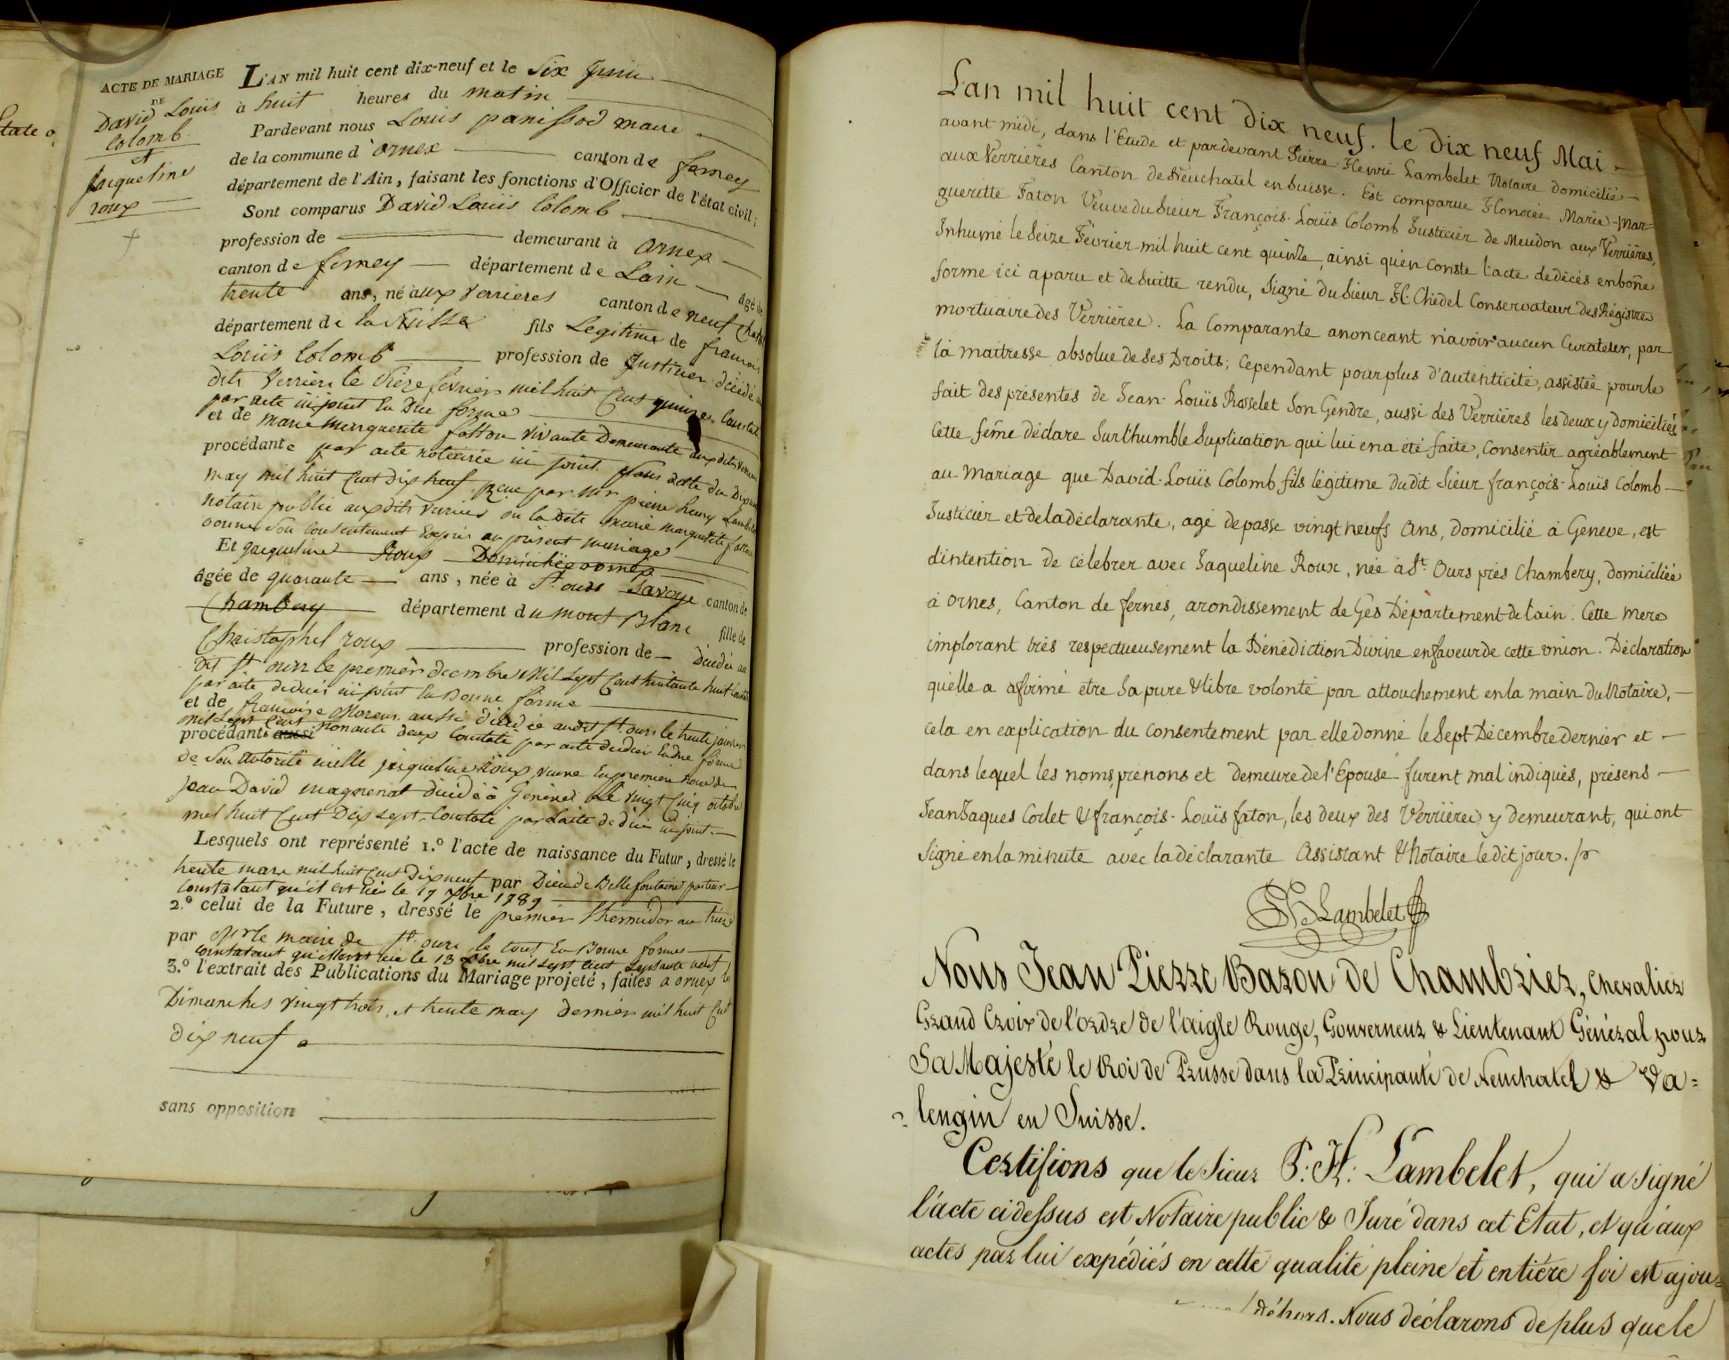 ACTE DE MARIAGE
DE
David Louis
Colomb
et
Jacqueline
roux
L'AN mil huit cent dix-neuf et le Six Juin
à huit heures du matin
Pardevant nous Louis panissod maire
de la commune d'ornex canton de ferney
département de l'Ain, faisant les fonctions d'Officier de l'état civil;
Sont comparus David Louis Colomb
profession de demeurant à ornex
canton de ferney département de Lain âgé de
trente ans, né aux verrieres canton de neuf
département de la Suisse fils Legitime de francois
Louis Colomb profession de Justicier décédé
dits Verrière le Sieze fevrier mil huit Cent quinze
par acte ci joint En Due forme
et de marie Marguerite fatton vivante Demeurante aux dits
procédante par acte notariée ici joint Sous datte du
may mil huit Cent dix neuf Reçue par Mr pierre henry
notaire publie aux dits la dite marie marguerite
donne Son Consentement au présent mariage
Et Jacqueline Roux Domiciliée à ornex
âgée de quarante ans, née à St. ours Savoye canton de
Chambery département du mont Blanc fille de
Christophel roux profession de Décédé au
dit St ours le premier décembre Mil Sept Cent huit
par acte de décès ci joint En Bonne forme
et de françoise aussi décédée audit St ours le trente janvier
mil Sept Cent Nonante deux Constaté par acte de décès En due forme
procédante aussi
de Son autorité icelle jacqueline Roux veuve En premiere noce de
Jean David décédé à Genève Le Vingt Cinq octobre
mil huit Cent Dix Sept Constaté par Lacte de décès ci joint
Lesquels ont représenté 1.º l'acte de naissance du Futur, dressé le
trente mars mil huit Cent Dix neuf par Dieu de Bellefontaine pasteur
Constatant qu'il est né le 17 1789
2.º celui de la Future, dressé le premier Thermidor an
par Mr le maire de St ours le tout En Bonne forme
constatant qu'elle est née le 13 mil sept cent
3.º l'extrait des Publications du Mariage projeté, faites à ornex le
Dimanches vingt trois, et trente may dernier mil huit Cent
dix neuf
sans opposition
L'an mil huit cent dix neuf. le dix neuf Mai
avant midi, dans l'Etude et pardevant Pierre Henri Lambelet Notaire domicilié
aux Verrières Canton de Neuchatel en Suisse. Est comparue Honorée Marie-Mar=
gueritte Faton Veuve du Sieur François-Louis Colomb Justicier de Meudon aux Verrières,
Inhumé le Seize Février mil huit cent quinze, ainsi qu'en conste l'acte de décès en bonne
forme ici aparu et de Suitte rendu, Signé du Sieur Hl Chédel Conservateur des Régistres
mortuaire des Verrières. La Comparante anonceant n'avoir aucun Curateur, par
là maitresse absolue de ses Droits; Cependant pour plus d'autenticité, assistée pour le
fait des présentes de Jean-Louis Rosselet Son Gendre, aussi des Verrières les deux y domiciliés
Cette feme déclare Sur l'humble Suplication qui lui en a été faite, Consentir agréablement
au Mariage que David-Louis Colomb fils légitime du dit Sieur françois-Louis Colomb
Justicier et de la déclarante, agé de passe vingt neufs Ans, domicilié à Geneve, est
d'intention de célebrer avec Jaqueline Roux, née à St. Ours près Chambery, domiciliée
à Ornes, Canton de fernès, arondissement de Gès Département de l'ain. Cette mere
implorant très respectueusement la Bénédiction Divine en faveur de cette union. Déclaration
qu'elle a afirmé etre Sa pure & libre volonté par attouchement en la main du Notaire,
cela en explication du consentement par elle donné le Sept Décembre dernier et
dans lequel les noms, prénons et demeure de l'Epouse furent mal indiqués, présens
Jean Jaques Corlet & françois-Louis faton, les deux des Verrières y demeurant, qui ont
Signé en la minute avec la déclarante Assistant & Notaire le dit jour.
Lambelet
Nous Jean Pierre Baron de Chambrier, Chevalier
Grand Croix de l'ordre de l'aigle Rouge, Gouverneur & Lieutenant Général pour
Sa Majesté le Roi de Prusse dans la Principauté de Neuchatel & Va=
lengin en Suisse.
Certifions que le Sieur P: H: Lambelet, qui a signé
l'acte cidessus est Notaire public & Juré dans cet Etat, et qu'aux
actes par lui expédiés en cette qualité pleine et entiére foi est ajou=
déhors. Nous déclarons de plus que le